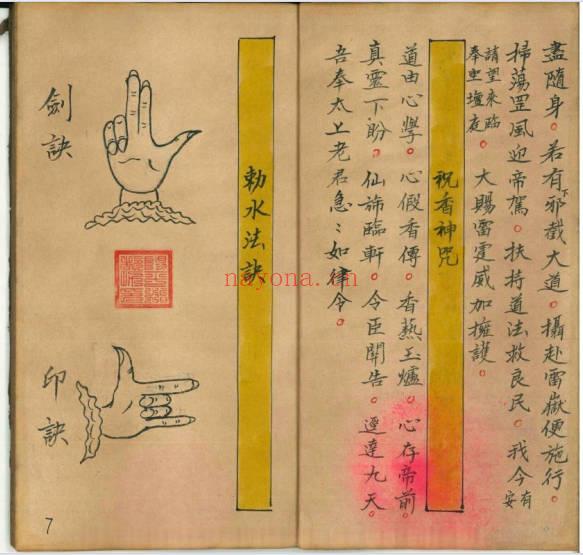 盡隨身。若有下邪截大道。攝赴雷嶽便施行。
掃蕩罡風迎帝駕。扶持道法救良民。我今有安
請望來臨
奉重壇庭。大賜雷霆威加擁護。
祝香神咒
道由心學。心假香傳。香熱玉爐。心存帝前
真靈下盼。仙旆臨軒。令臣関告。逕達九天。
吾奉太上老君急〻如律令。
勅水法訣
劍訣
印訣
7
nayona.cn